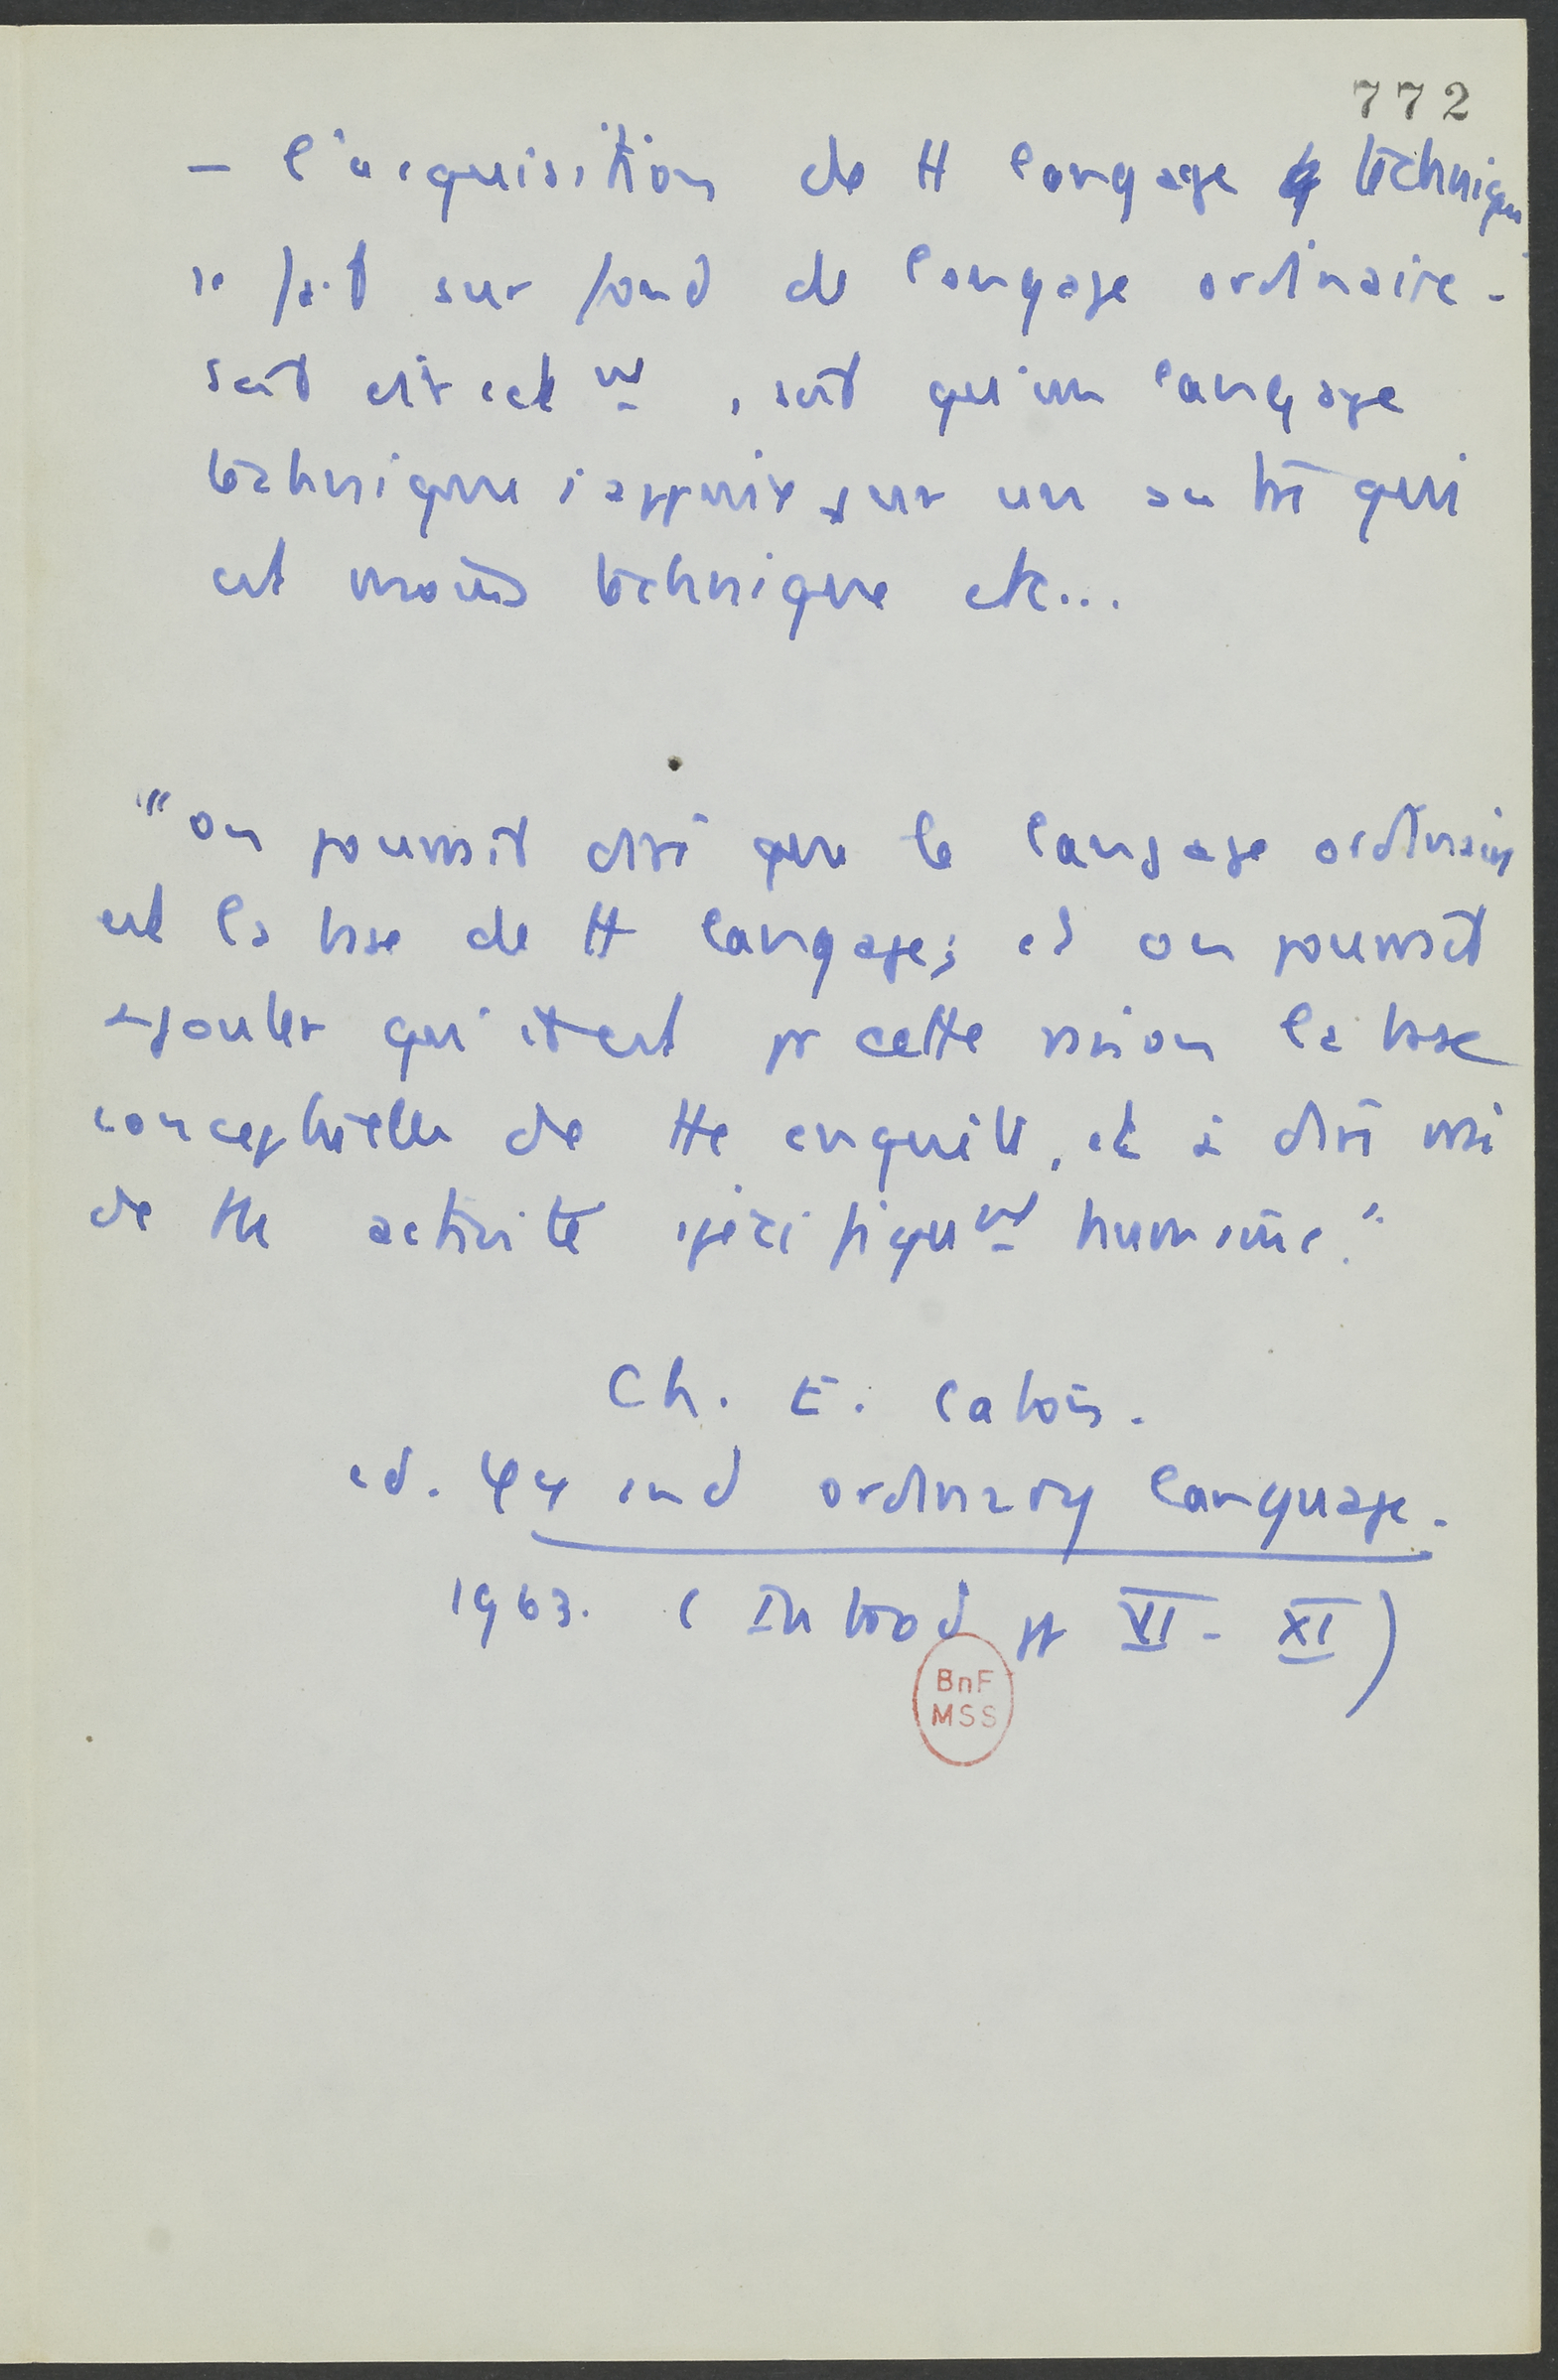 772
– l'acquisition de tt langage technique
se fait sur fond de langage ordinaire -
soit direct^mt, soit qu'un langage
technique s'appuie sur un autre qui
est moins technique etc...
"On pourrait dire que le langage ordinaire
est la base de tt langage; et on pourrait
ajouter qu'il est pr cette raison la base
conceptuelle de tte enquête, et à dire vrai
de tte activité spécifiqu^mt humaine."
Ch. E. Caton.
ed. φy and ordinary language.
1963. (Introd pp VI - XI)
BnF
MSS